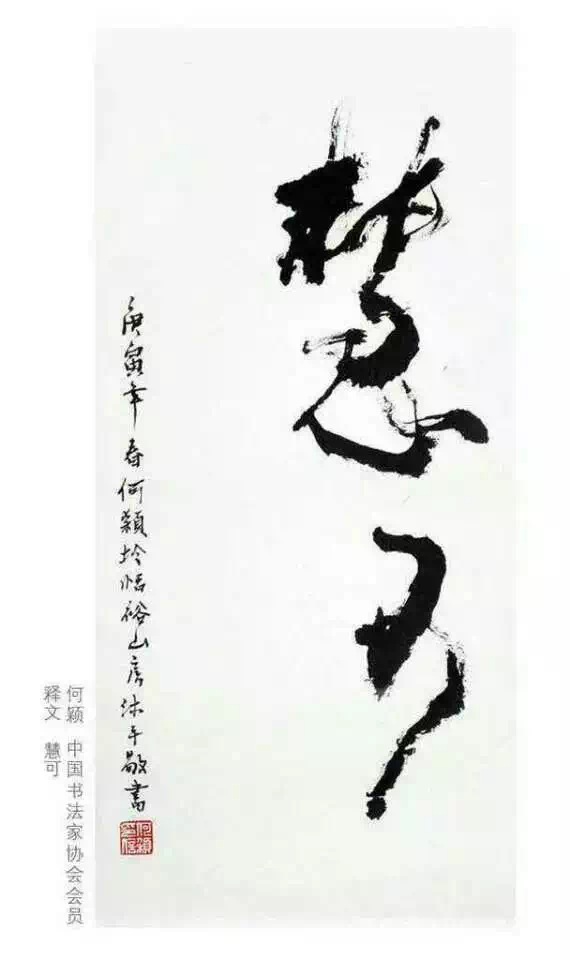 慧可
庚寅年春何颖于恬裕山房沐手敬书
何颖 中国书法家协会会员
释文 慧可